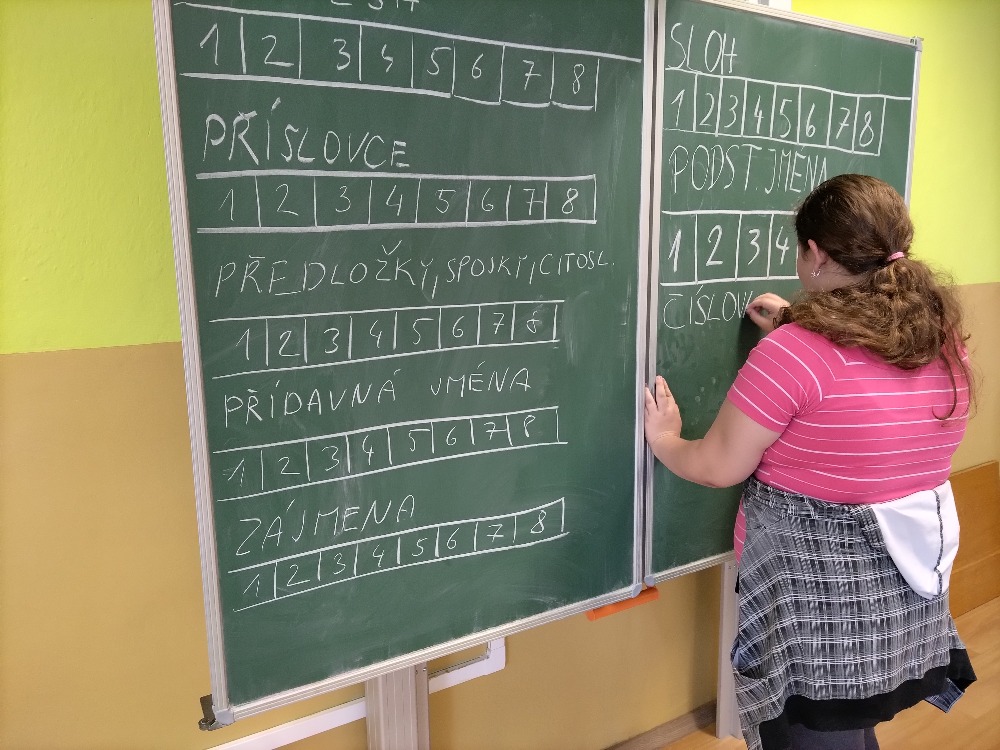 1 2 3 4 5 6 7 8
PŘÍSLOVCE
1 2 3 4 5 6 7 8
PŘEDLOŽKY, SPOJKY, CITOSL.
1 2 3 4 5 6 7 8
PŘÍDAVNÁ JMÉNA
1 2 3 4 5 6 7 8
ZÁJMENA
1 2 3 4 5 6 7 8
SLOH
1 2 3 4 5 6 7 8
PODST. JMÉNA
1 2 3 4
ČÍSLOV